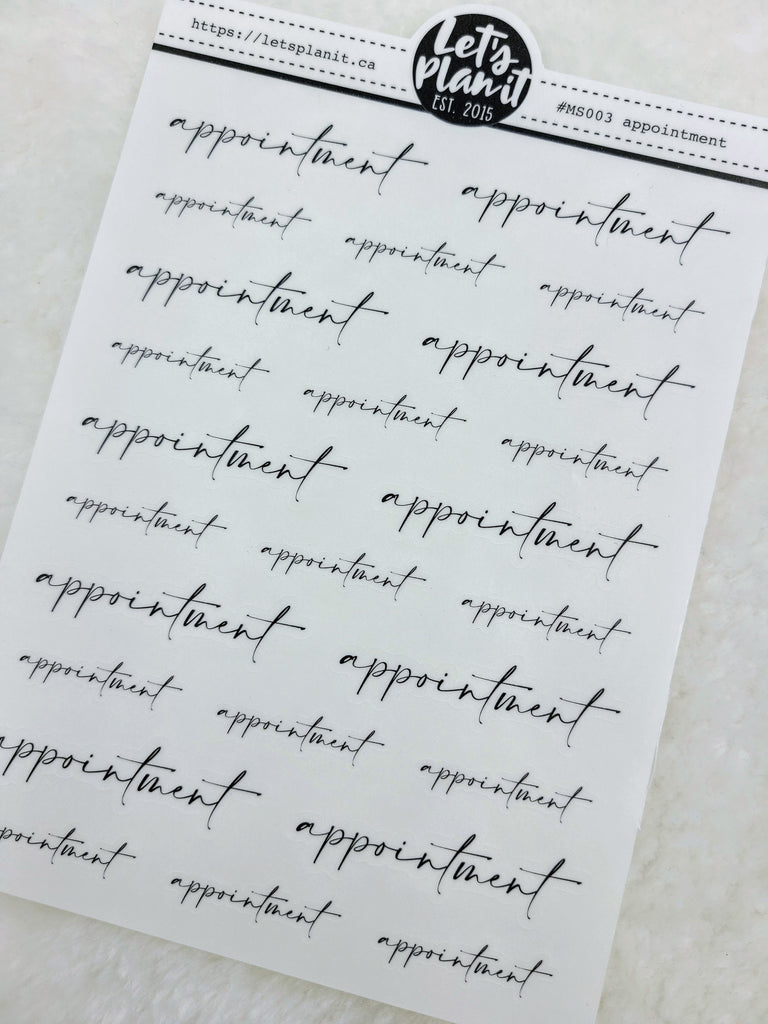 https://letsplanit.ca
Let's
Plan it
EST. 2015
#MS003 appointment
appointment appointment
appointment appointment appointment
appointment appointment
appointment appointment appointment
appointment appointment
appointment appointment appointment
appointment appointment
appointment appointment appointment
appointment appointment
pointment appointment appointment